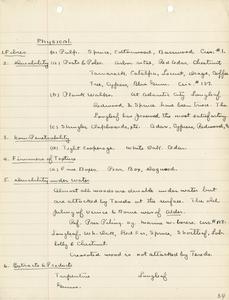 Physical.
1. Fibres (a) Pulp. Spruce, Cottonwood, Basswood Circ. #1.
2. Durability (a) Posts & Poles Arbor vitae, Red Cedar, Chestnut
Tamarack, Catalpa, Locust, Osage, Coffee
Tree, Cypress, Blue Gum. Circ. #
(b) Plank Walks. At Atlantic City Longleaf,
Redwood & Spruce have been tried. The
Longleaf has proved the most satisfactory
(c) Shingles, Clapboards, etc. Cedar, Cypress, Redwood
3. Non-Penetrability
(a) Tight Cooperage. White Oak. Cedar.
4. Firmness of Texture
(a) Fine Boxes. Pear, Box, Dogwood.
5. Durability under Water
Almost all woods are durable under water but
are attacked by Teredo at the surface. The old
piling of Venice & Rome was of Alder.
Ref. Pres. Piling ag. marine w. borers, circ #128.
Longleaf, W. Oak, Red Fir, Spruce, Shortleaf, Lob-
lolly & Chestnut.
Creosoted wood is not affected by Teredo.
6. Extracts & Products
Turpentine Longleaf
Gums.